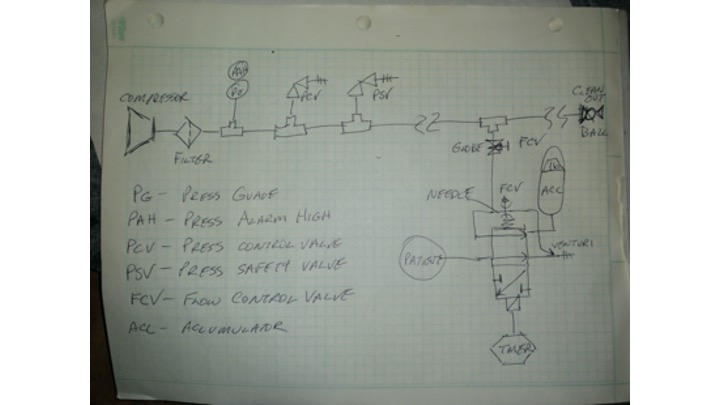 PAH
PG
PCV
PSV
COMPRESSOR
FILTER
CLEAN OUT
BALL
GLOBE
FCV
NEEDLE
FCV
ACC
VENTURI
PATIENT
TIMER
PG - PRESS GUAGE
PAH - PRESS ALARM HIGH
PCV - PRESS CONTROL VALVE
PSV - PRESS SAFETY VALVE
FCV - FLOW CONTROL VALVE
ACC - ACCUMULATOR